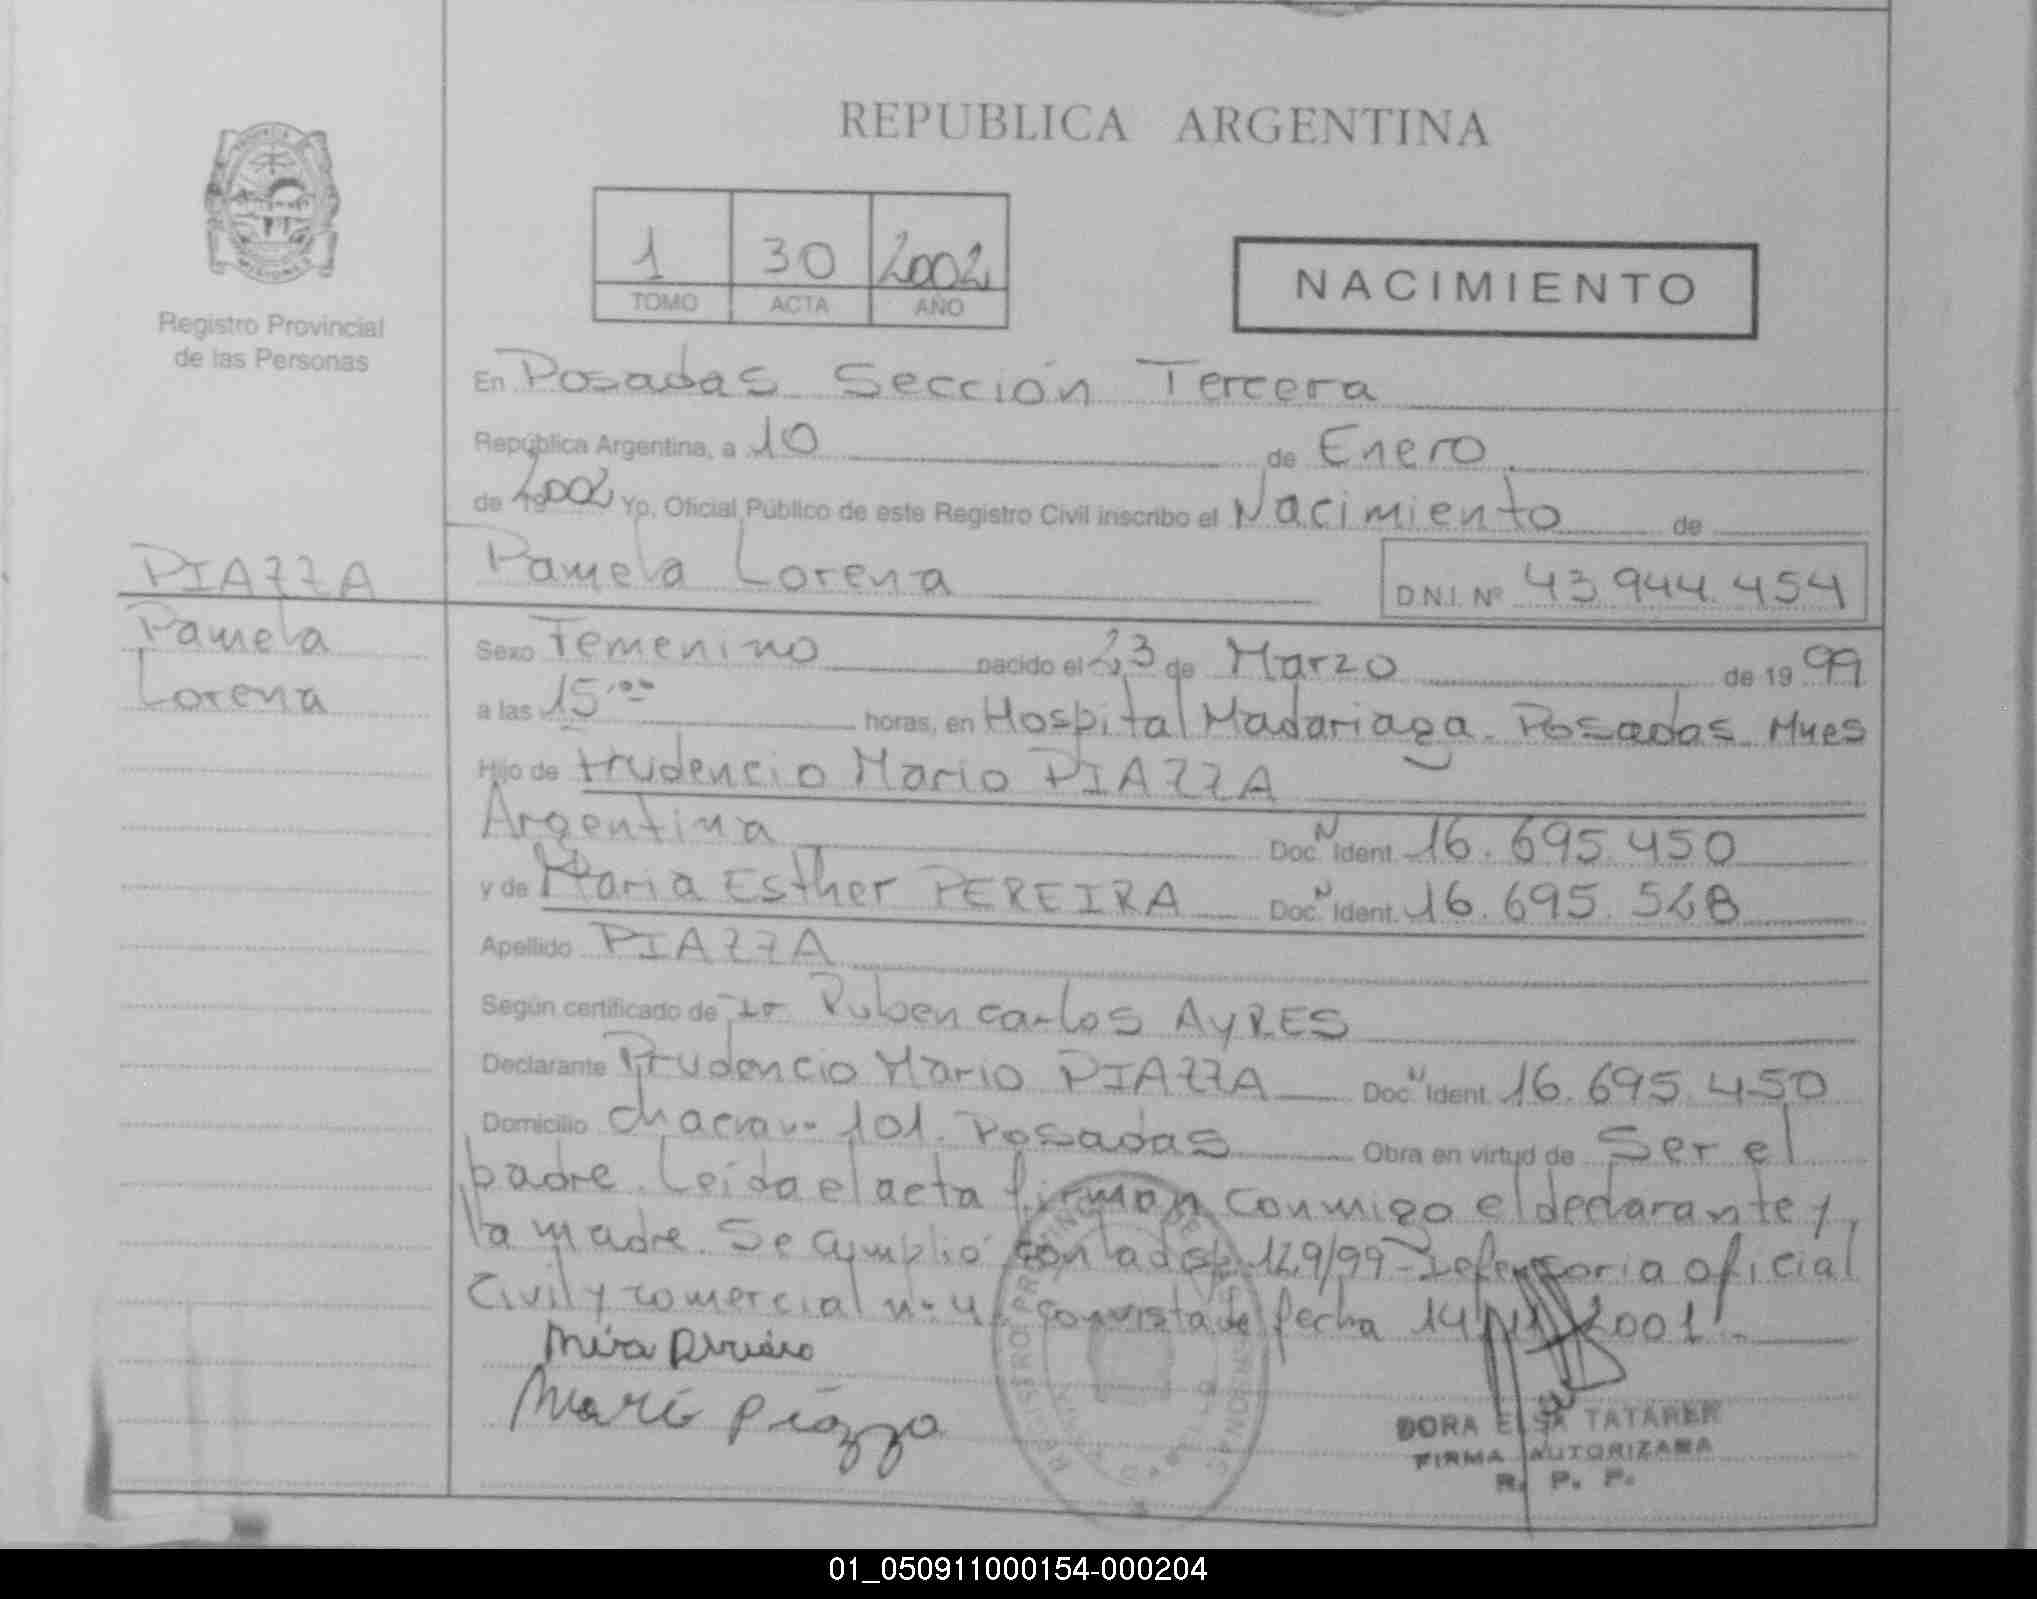 REPUBLICA ARGENTINA
PROVINCIA
MISIONES
Registro Provincial
de las Personas
1 30 2002
TOMO ACTA AÑO
NACIMIENTO
En Posadas Sección Tercera
República Argentina, a 10 de Enero
de 2002 Yo, Oficial Público de este Registro Civil inscribo el Nacimiento de
PIAZZA
Pamela
Lorena
Pamela Lorena D.N.I. Nº 43.944.454
Sexo Femenino nacido el 23 de Marzo de 19 99
a las 15,00 horas, en Hospital Madariaga. Posadas Mnes
Hijo de Prudencio Mario PIAZZA
Argentina Doc. N Ident. 16.695.450
y de Maria Esther PEREIRA Doc. N Ident. 16.695.568
Apellido PIAZZA
Según certificado de Dr Ruben Carlos AYRES
Declarante Prudencio Mario PIAZZA Doc. N Ident. 16.695.450
Domicilio Chacra nº 101. Posadas Obra en virtud de Ser el
padre. Leída el acta firman conmigo el declarante y
la madre. Se cumplió con la disp. 129/99 - Defensoria oficial
Civil y comercial nº 4. con vista de fecha 14/11/2001.-
Mario Piazza
DORA ELSA TATAREN
FIRMA AUTORIZADA
R. P. P.
01_050911000154-000204